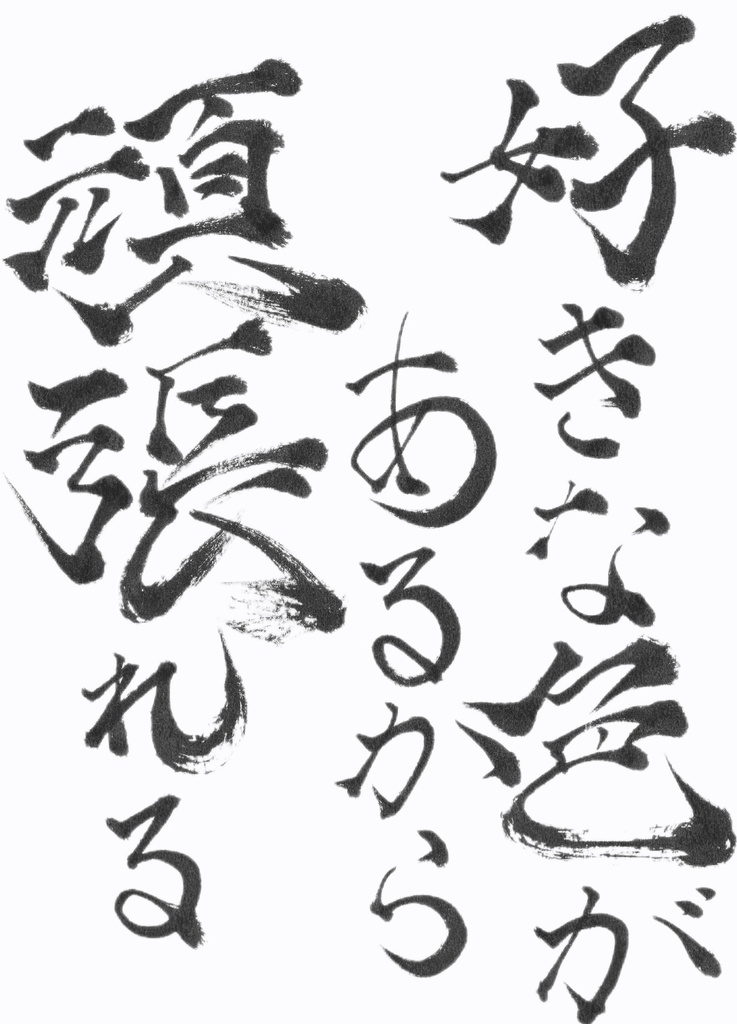 好きな色が
あるから
頑張れる